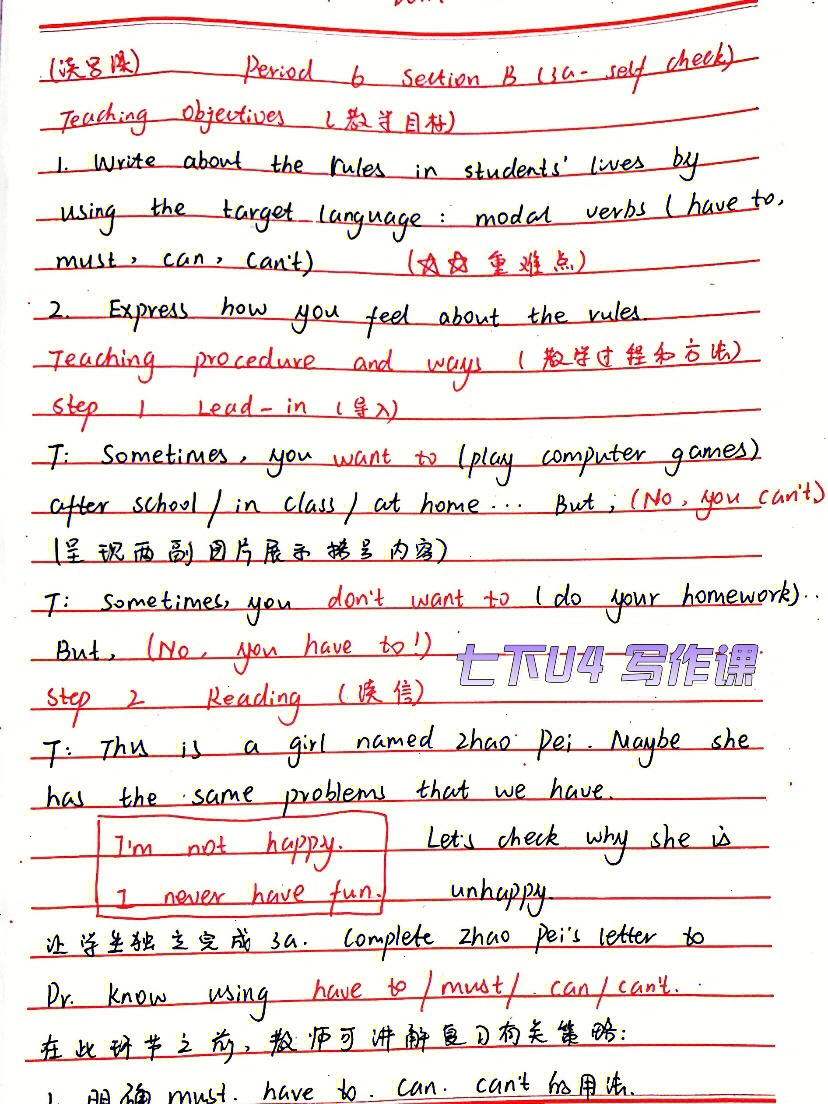 (读写课) Period 6 Section B (3a- self check)
Teaching objectives (教学目标)
1. Write about the rules in students' lives by
using the target language: modal verbs (have to,
must, can, can't) (☆☆ 重难点)
2. Express how you feel about the rules.
Teaching procedure and ways (教学过程和方法)
Step 1 Lead-in (导入)
T: Sometimes, you want to (play computer games)
after school/in class/at home... But, (No, you can't)
(呈现两副图片展示括号内容)
T: Sometimes, you don't want to (do your homework)..
But, (No, you have to!)
七下U4 写作课
Step 2 Reading (读信)
T: This is a girl named Zhao Pei. Maybe she
has the same problems that we have.
I'm not happy. Let's check why she is
I never have fun. unhappy.
让学生独立完成3a. Complete Zhao Pei's letter to
Dr. Know using have to/must/can/can't.
在此环节之前,教师可讲解复习有关策略:
1. 明确must. have to. can. can't 的用法.